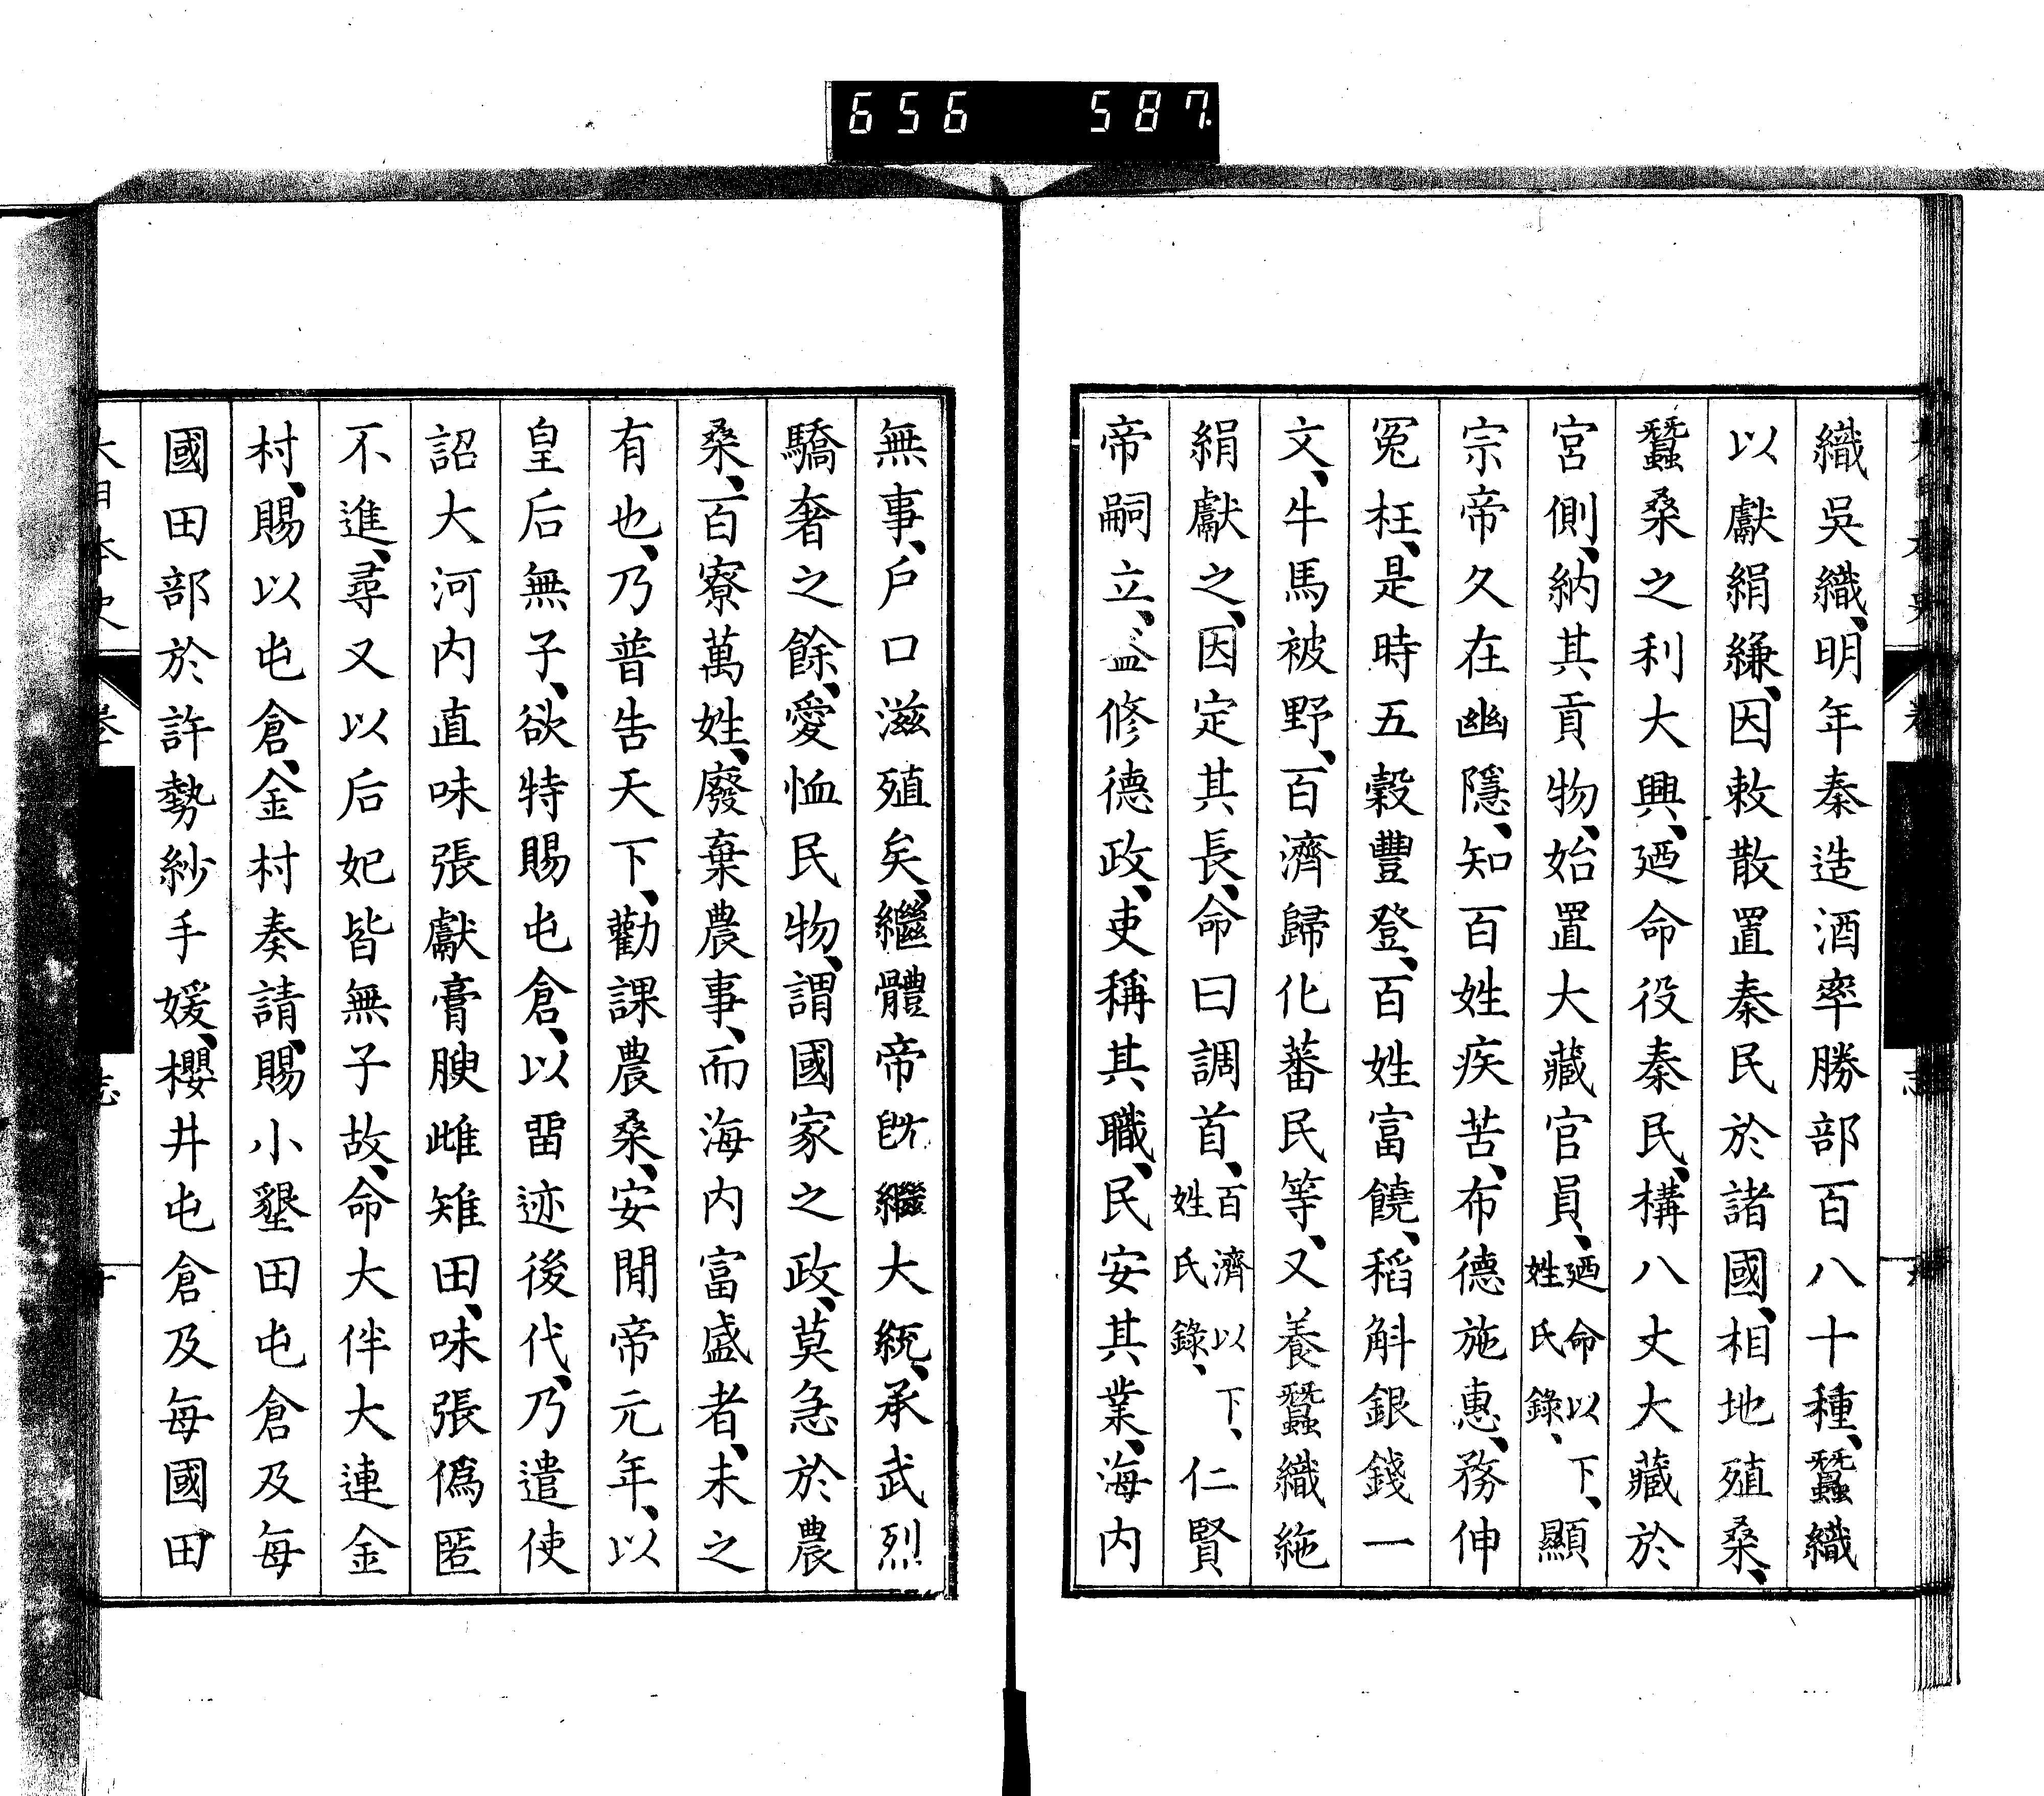 656 587.
織吳織、明年秦造酒率勝部百八十種、蠶織
以獻絹縑、因敕散置秦民於諸國、相地殖桑、
蠶桑之利大興、廼命役秦民、構八丈大藏於
宮側、納其貢物、始置大藏官員、廼命以下、姓氏錄、顯
宗帝久在幽隱、知百姓疾苦、布德施惠、務伸
冤枉、是時五穀豐登、百姓富饒、稻斛銀錢一
文、牛馬被野、百濟歸化蕃民等、又養蠶織絁
絹獻之、因定其長、命曰調首、百濟以下、姓氏錄、仁賢
帝嗣立、益修德政、吏稱其職、民安其業、海内
無事、戶口滋殖矣、繼體帝旣繼大統、承武烈
驕奢之餘、愛恤民物、謂國家之政、莫急於農
桑、百寮萬姓、廢棄農事、而海内富盛者、未之
有也、乃普告天下、勸課農桑、安閒帝元年、以
皇后無子、欲特賜屯倉、以畱迹後代、乃遣使
詔大河内直味張獻膏腴雌雉田、味張僞匿
不進、尋又以后妃皆無子故、命大伴大連金
村、賜以屯倉、金村奏請、賜小墾田屯倉及每
國田部於許勢紗手媛、櫻井屯倉及每國田